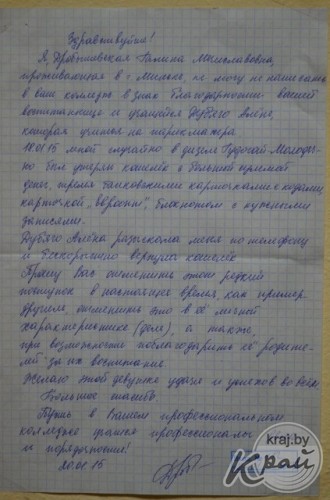 Здравствуйте!
Я, Галина Мечиславовна,
проживающая в г. Минске, не могу не написать
в ваш колледж в знак благодарности вашей
воспитаннице и учащейся Дубяго Алёне,
которая учится на парикмахера.
18.01.15 мной случайно в дизеле Гудогай-Молодеч-
но был утерян кошелёк с большой суммой
денег, тремя банковскими карточками с кодами,
карточкой, блокнотом с нужными
записями.
Дубяго Алёна разыскала меня по телефону
и бескорыстно вернула кошелёк.
Прошу Вас отметить этот редкий
поступок в настоящее время, как пример
другим, отметить это в её личной
характеристике (деле), а также,
при возможности поблагодарить её родите-
лей за их воспитание.
Желаю этой девушке удачи и успехов во всём.
Большое спасибо.
Пусть в Вашем профессиональном
колледже учатся профессионалы
и порядочные!
20.01.15
kraj.by
Край